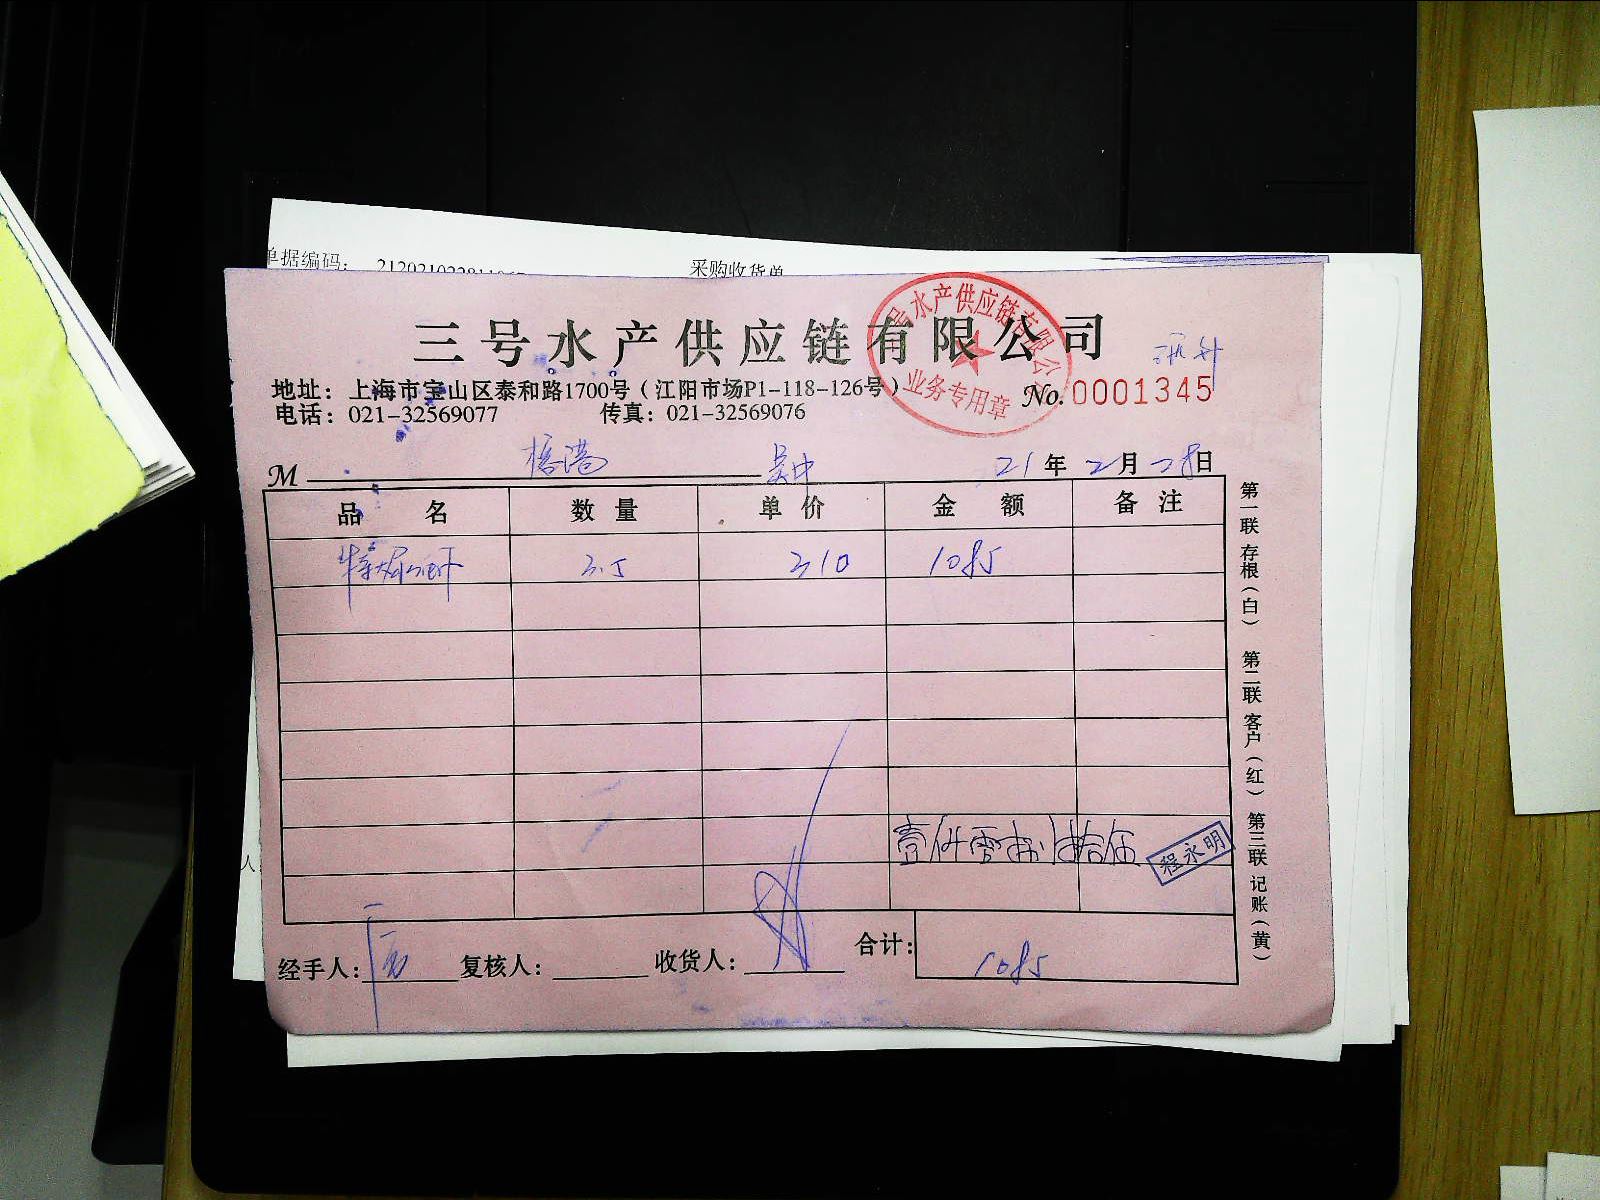 单据编码：
采购收货单
三号水产供应链有限公司
号水产供应链有限公
业务专用章
地址：上海市宝山区泰和路1700号（江阳市场P1-118-126号）
No. 0001345
电话：021-32569077 传真：021-32569076
M 吴中 21年2月28日
品名 数量 单价 金额 备注
3.5 310 1085
壹仟零捌拾伍
程永明
经手人： 复核人： 收货人： 合计： 1085
第一联 存根（白） 第二联 客户（红） 第三联 记账（黄）